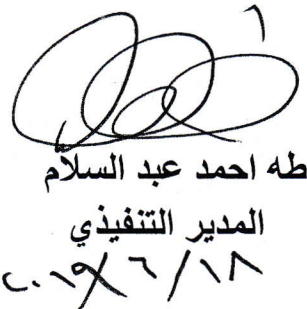 طه احمد عبد السلام
المدير التنفيذي
٢٠١٩/٦/١٨